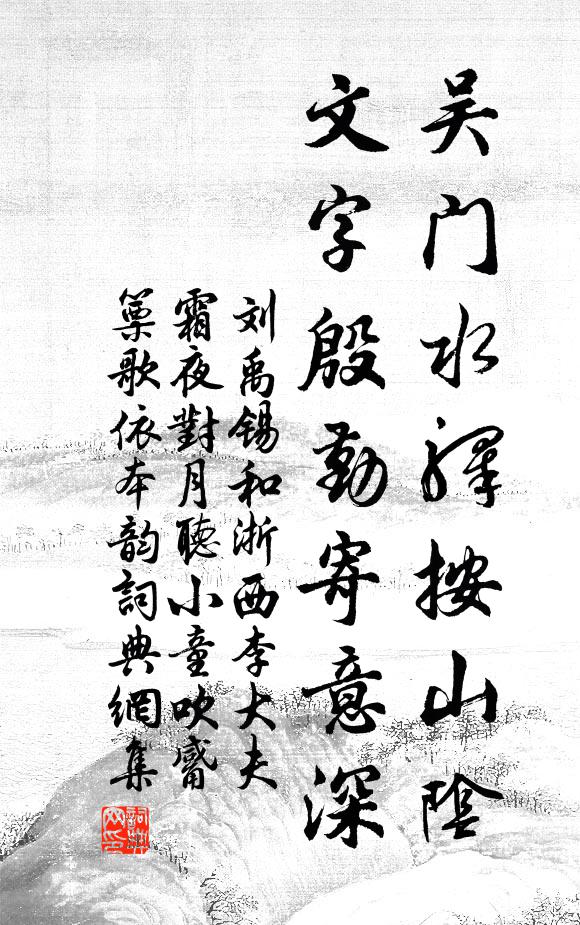 吴门水驛按山陰
文字殷勤寄意深
刘禹锡和浙西李大夫
霜夜對月聽小童吹觱
篥歌依本韵詞典網集